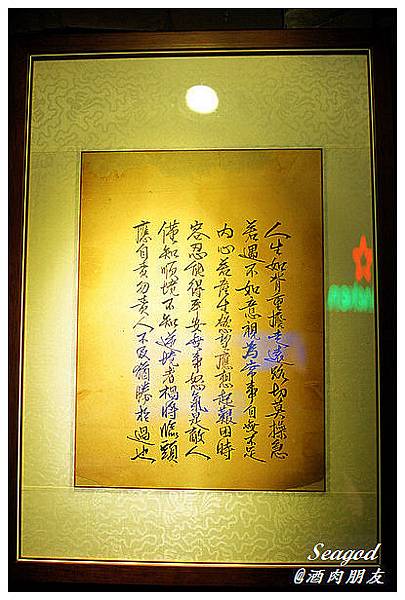 人生如背重擔走遠路切莫操急
若遇不如意視為常事自無不足
內心若產生慾望應想起艱困時
容忍能得平安無事怒氣是敵人
僅知順境不知逆境者禍將臨頭
應自責勿責人不及猶勝於過也
Seagod
@酒肉朋友